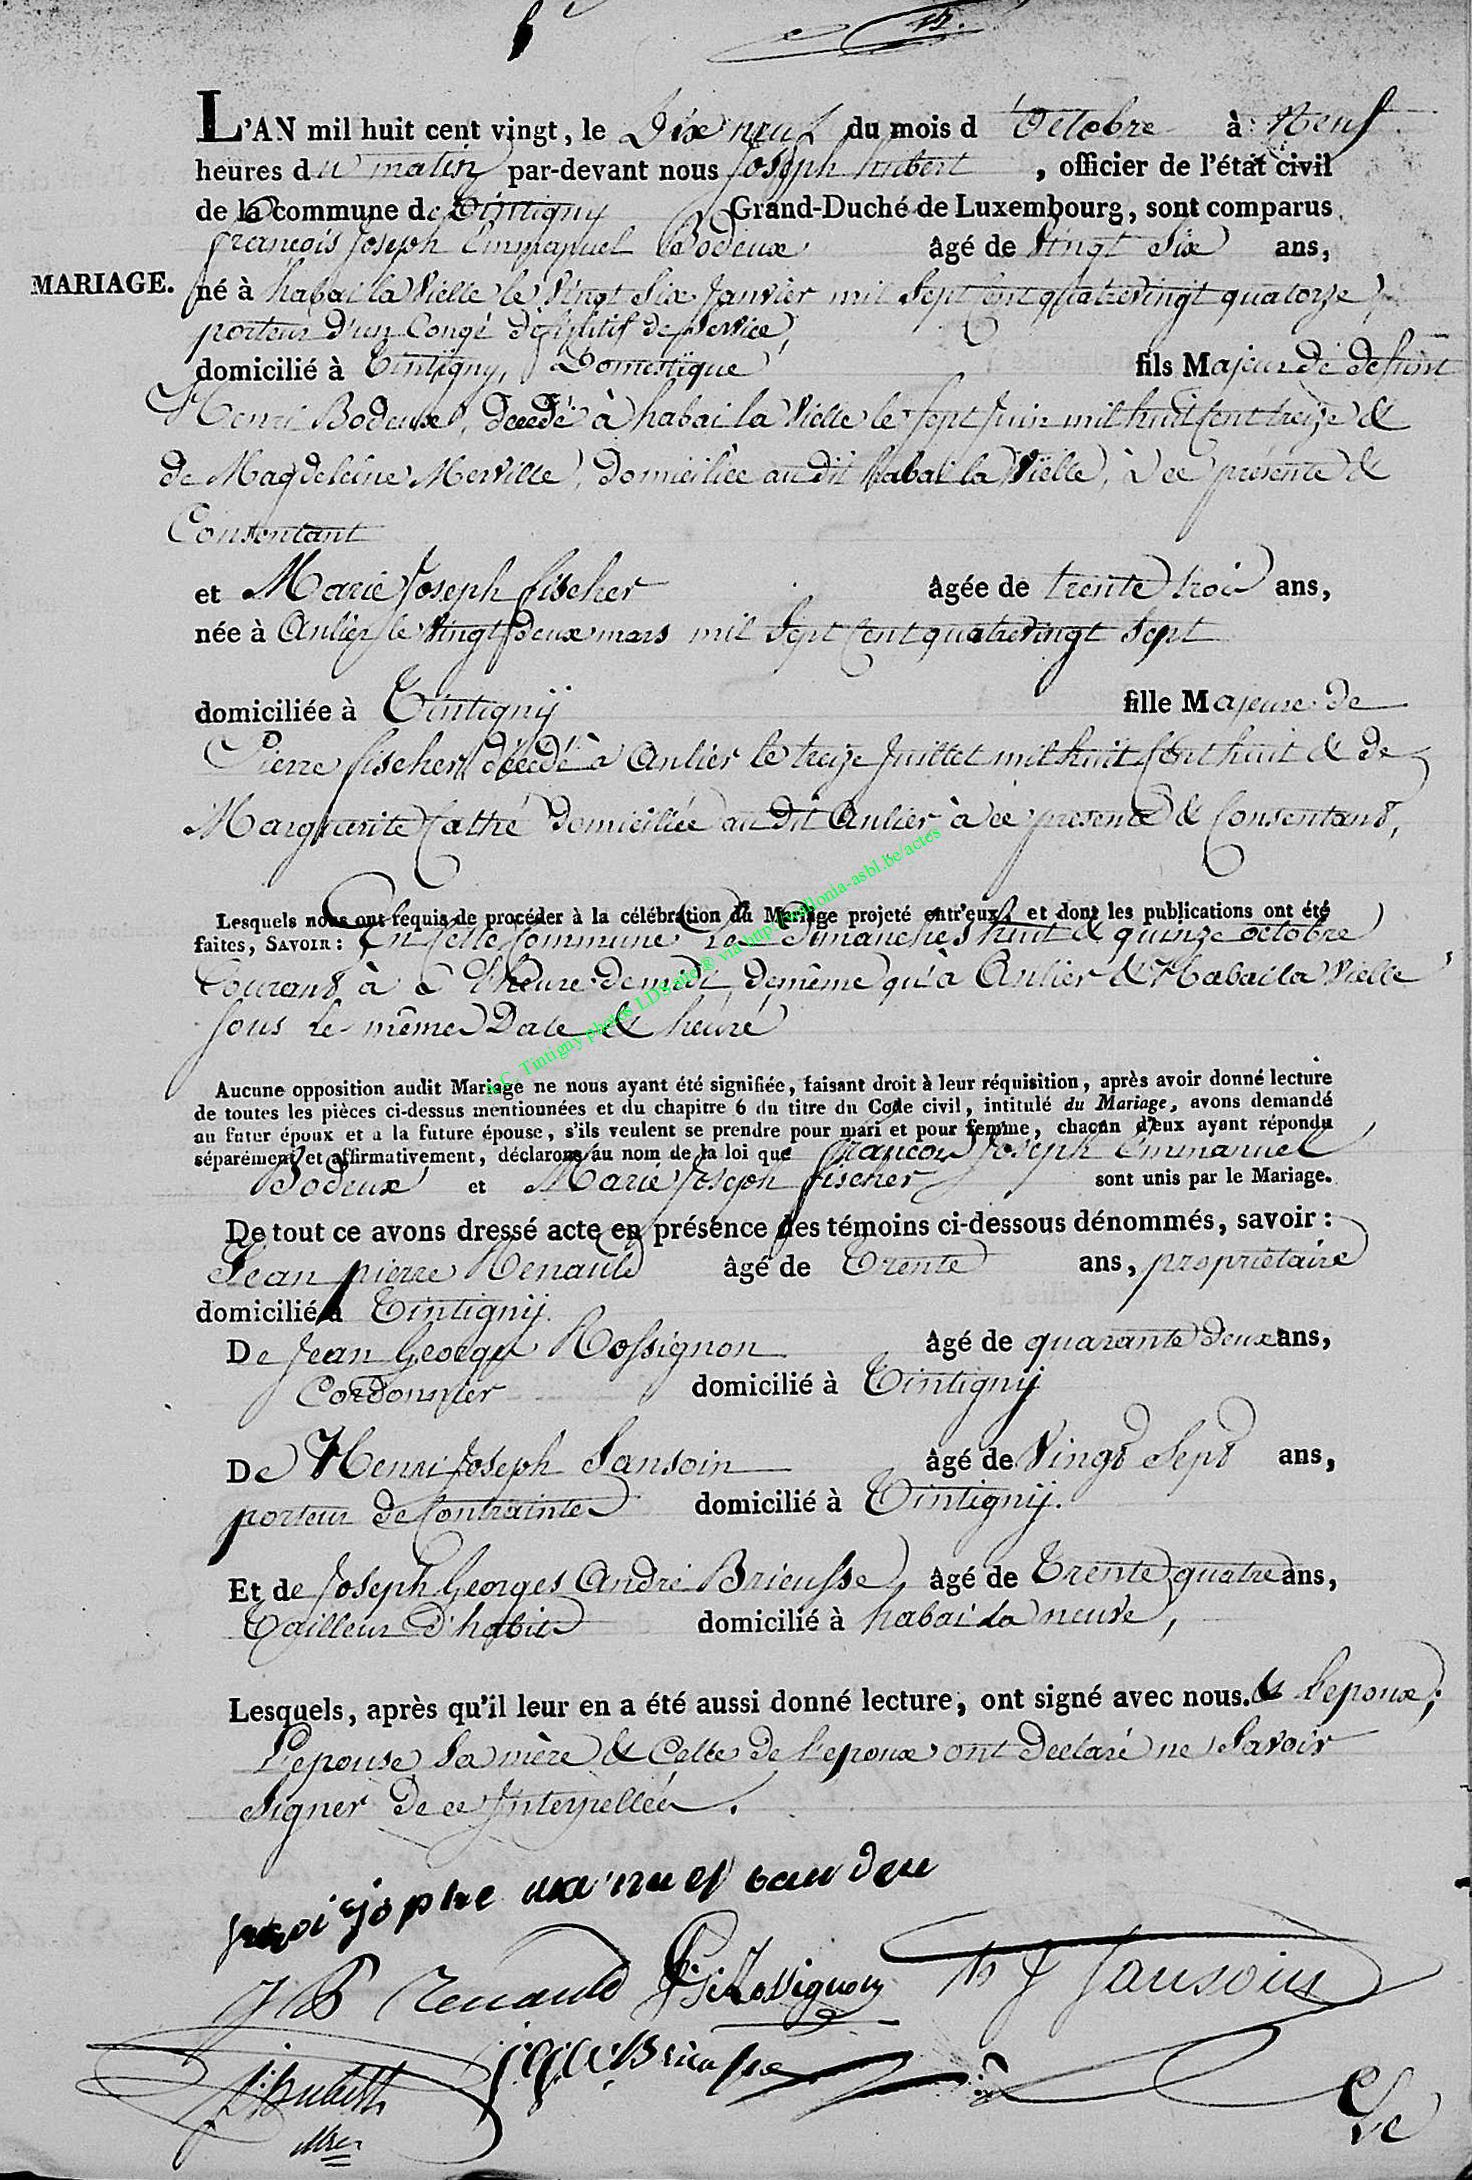 15.
L'AN mil huit cent vingt, le Dix neuf du mois d'Octobre à Neuf
heures du matin par-devant nous Joseph hubert, officier de l'état civil
de la commune de Tintigny Grand-Duché de Luxembourg, sont comparus
françois Joseph Emmanuel Bodeux âgé de Vingt Six ans,
MARIAGE. né à habai la Vielle le Vingt Six Janvier mil Sept Cent quatrevingt quatorze,
porteur d'un Congé définitif de Service,
domicilié à Tintigny, Domestique fils Majeur de defunt
Henri Bodeux, décédé à habai la Vielle le Sept Juin mil huit Cent treize &
de Magdeleine Merville, domiciliée au dit habai la Vielle, à ce présente &
Consentant
et Marie Joseph fischer âgée de trente trois ans,
née à Anlier le Vingt deux mars mil Sept Cent quatrevingt Sept
domiciliée à Tintignÿ fille Majeure de
Pierre fischer décédé à Anlier le treize Juillet mil huit Cent huit & de
Marguerite Cathé domiciliée au dit Anlier à ce presente & Consentant,
Lesquels nous ont requis de procéder à la célébration du Mariage projeté entr'eux, et dont les publications ont été
faites, SAVOIR : En Cette Commune les Dimanches huit & quinze octobre
Courant à l'heure de midi, de même qu'à Anlier & Habai la Vielle
Sous le même Date & heure
Aucune opposition audit Mariage ne nous ayant été signifiée, faisant droit à leur réquisition, après avoir donné lecture
de toutes les pièces ci-dessus mentionnées et du chapitre 6 du titre du Code civil, intitulé du Mariage, avons demandé
au futur époux et à la future épouse, s'ils veulent se prendre pour mari et pour femme, chacun d'eux ayant répondu
séparément et affirmativement, déclarons au nom de la loi que françois Joseph Emmanuel
Bodeux et Marie Joseph fischer sont unis par le Mariage.
De tout ce avons dressé acte en présence des témoins ci-dessous dénommés, savoir :
Jean pierre Renauld âgé de Trente ans, propriétaire
domicilié à Tintignÿ.
De Jean George Rossignon âgé de quarante deux ans,
Cordonnier domicilié à Tintignÿ
De Henri Joseph Sansoin âgé de Vingt Sept ans,
porteur de Contrainte domicilié à Tintignÿ.
Et de Joseph Georges André Brieusse, âgé de Trente quatre ans,
Tailleur d'habits domicilié à habai la neuve,
Lesquels, après qu'il leur en a été aussi donné lecture, ont signé avec nous. & l'epoux,
L'epouse Sa mère & Celle de l'epoux ont declaré ne Savoir
Signer de ce Interpellées.
J P Renauld J: G: Rossignon h J Sansoin
J: G: A: Brieusse
J: hubert
A.C. Tintigny photos LDS site® via http://wallonia-asbl.be/actes